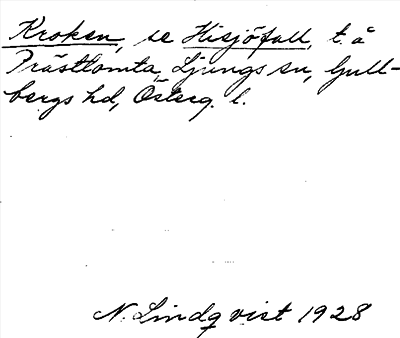 Kroken, se Hisjöfall, t. å
Prästtomta, Ljungs sn, Gull-
bergs hd, Österg. l.
N. Lindqvist 1928